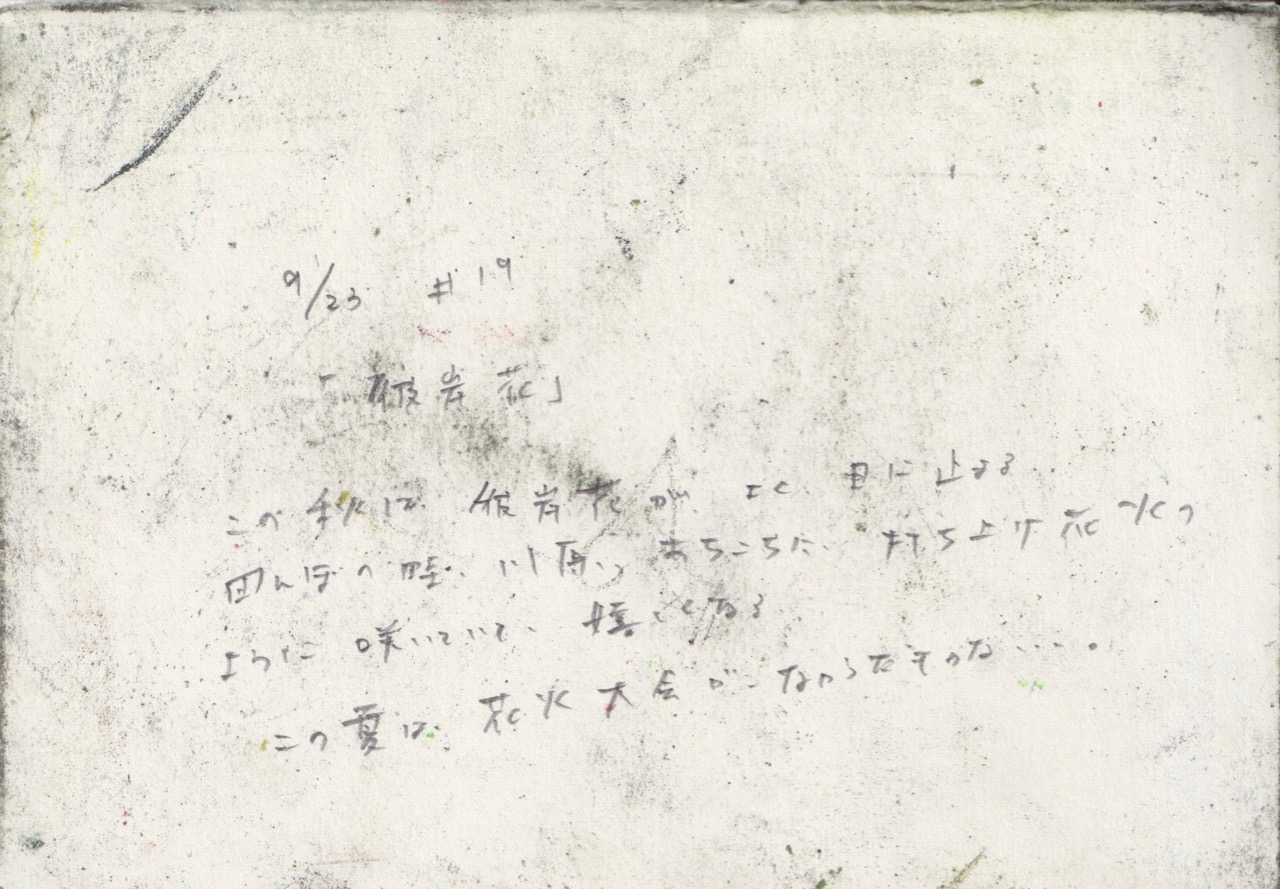 9/23 #19
「彼岸花」
この秋は、彼岸花が、よく、目に止まる。
田んぼの畦、川原、あちこちに、打ち上げ花火の
ように咲いていて、嬉しくなる
この夏は、花火大会がなかったものな…。